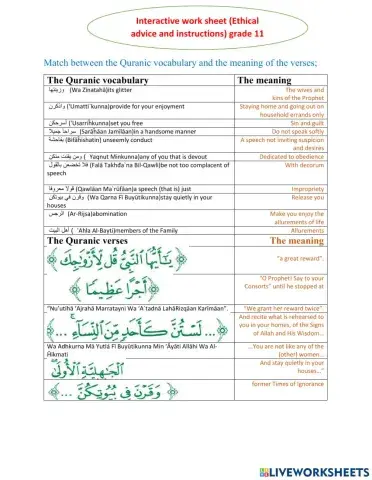 Interactive work sheet (Ethical
advice and instructions) grade 11
Match between the Quranic vocabulary and the meaning of the verses;
The Quranic vocabulary The meaning
وزينتها (Wa Zinatahā)its glitter The wives and
kins of the Prophet
('Umatti`kunna)provide for your enjoyment Staying home and going out on
household errands only
أسرحكن ('Usarriĥkunna)set you free Sin and guilt
سراحا جميلا (Sarāĥāan Jamīlāan)in a handsome manner Do not speak softly
بفاحشة (Bifāĥishatin) unseemly conduct A speech not inviting suspicion
and desires
ومن يقنت منكن ( Yaqnut Minkunna)any of you that is devout Dedicated to obedience
فلا تخضعن بالقول (Falā Takhđa`na Bil-Qawli)be not too complacent of
speech With decorum
قولا معروفا (Qawlāan Ma`rūfāan)a speech (that is) just Impropriety
وقرن في بيوتكن (Wa Qarna Fī Buyūtikunna)stay quietly in your
houses Release you
الرجس (Ar-Rijsa)abomination Make you enjoy the
allurements of life
أهل البيت ( 'Ahla Al-Bayti)members of the Family Allurements
The Quranic verses The meaning
يَٰٓأَيُّهَا ٱلنَّبِيُّ قُل لِّأَزْوَٰجِكَ "a great reward".
أَجْرًا عَظِيمًا "O Prophet! Say to your
Consorts" until he stopped at
"Nu'utihā 'Ajrahā Marratayni Wa 'A`tadnā LahāRizqāan Karīmāan". "We grant her reward twice"
... لَسْتُنَّ كَأَحَدٍ مِّنَ ٱلنِّسَآءِ ... And recite what is rehearsed to
you in your homes, of the Signs
of Allah and His Wisdom...
Wa Adhkurna Mā Yutlá Fī Buyūtikunna Min 'Āyāti Allāhi Wa Al-
Ĥikmati ...You are not like any of the
(other) women...
ٱلْجَٰهِلِيَّةِ ٱلْأُولَىٰ And stay quietly in your
houses..."
... وَقَرْنَ فِى بُيُوتِكُنَّ ... former Times of Ignorance
LIVEWORKSHEETS